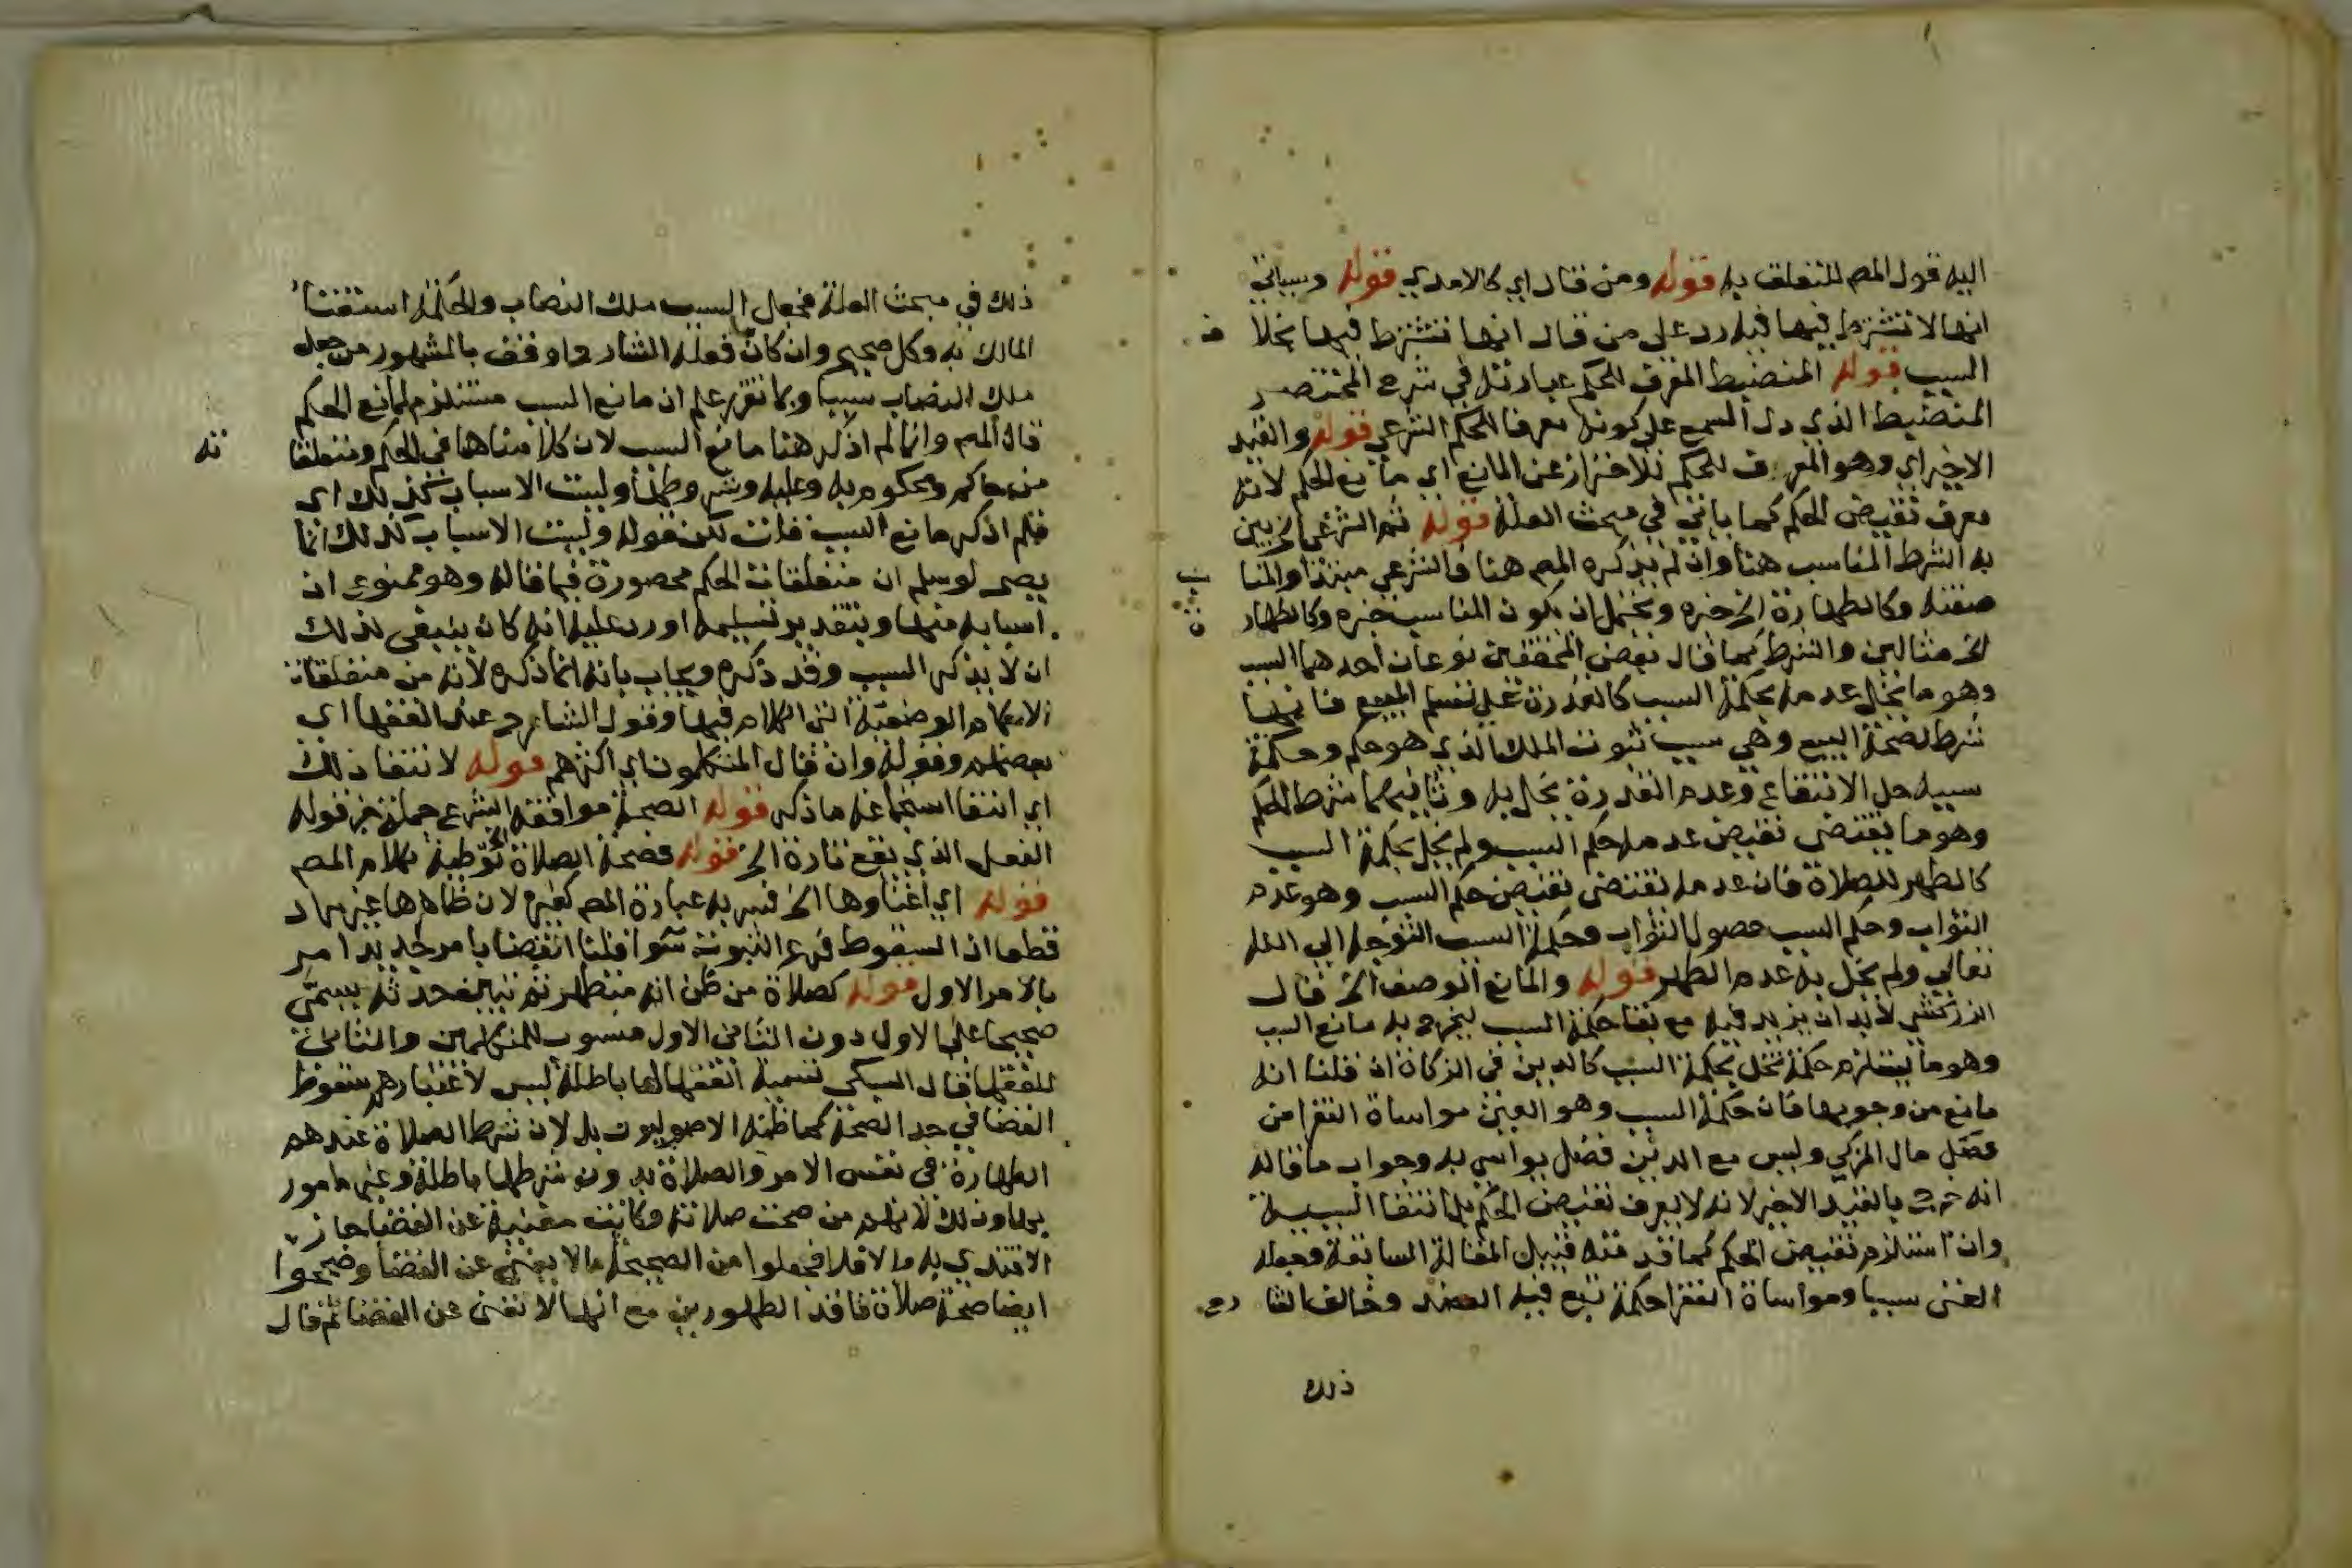 اليه قول المص للتعلق به قوله ومن قال اي كالامدي قوله وسياتي
انها لا تشترط فيها فيه رد على من قال انها تشترط فيها بخلا ف
السبب قوله المنضبط المعرف للحكم عبارته في شرح المختصر
المنضبط الذي دل السمع على كونه معرفا للحكم الشرعي قوله والقيد
الاخير اي وهو المعرف للحكم للاحتراز عن المانع اي مانع الحكم لانه
معرف نقيض الحكم كما ياتي في مبحث العلة قوله ثم الشرعي الخ بين
به الشرط المناسب هنا وان لم يذكره المص هنا فالشرعي مبتدا والمنا سب
صفته وكالطهارة الخ خبره ويحتمل ان يكون المناسب خبره وكالطهار ة
الخ مثالين والشرط كما قال بعض المحققين نوعان احدهما السبب
وهو ما يخل عدمه بحكمة السبب كالقدرة على تسليم المبيع فانها
شرط لصحة البيع وهي سبب ثبوت الملك الذي هو حكم وحكمة
سببه حل الانتفاع وعدم القدرة يخل به وثانيهما شرط الحكم
وهو ما يقتضي نقيض عدمه حكم السبب ولم يخل بحكمة السبب
كالطهر للصلاة فان عدمه يقتضي نقيض حكم السبب وهو عدم
الثواب وحكم السبب حصول الثواب وحكمة السبب التوجه الى الله
تعالى ولم يخل به عدم الطهر قوله والمانع الوصف الخ قال
الزركشي لا بد ان يزيد فيه مع بقا حكمة السبب ليخرج به مانع السبب
وهو ما يستلزم حكمة تخل بحكمة السبب كالدين في الزكاة ان قلنا انه
مانع من وجوبها فان حكمة السبب وهو الغني مواساة الفقرا من
فضل مال المزكي وليس مع الدين فضل يواسي به وجواب ما قاله
انه خرج بالقيد الاخير لانه لا يعرف نقيض الحكم بل انتفا السببية
وان استلزم نقيض الحكم كما قدمته قبيل المقالة السابقة وجعله
الغنى سببا ومواساة الفقرا حكمة تبع فيه العضد وخالف الشا رح
ذلك
ذلك في مبحث العلة فجعل السبب ملك النصاب والحكمة استغنا
المالك به وكل صحيح وان كان فعله الشارح اوفق بالمشهور من جعل
ملك النصاب سببا وبما تقرر علم ان مانع السبب مستلزم لمانع الحكم
قال المص وانما لم اذكر هنا مانع السبب لان كلامنا هنا في الحكم ومتعلقا ته
من حاكم ومحكوم به وعليه وشروطها وليست الاسباب كذلك اي
فلم اذكر مانع السبب قلت لكن قوله وليست الاسباب كذلك انما
يصح لو سلم ان متعلقات الحكم محصورة فيما قاله وهو ممنوع اذ
اسبابه منها وبتقدير تسليمه اورد عليه انه كان ينبغي لذلك
ان لا يذكر السبب وقد ذكره ويجاب بانه انما ذكره لانه من متعلقات
الاحكام الوضعية التي الكلام فيها وقول الشارح عند الفقها اي
بعضهم وقوله وان قال المتكلمون اي اكثرهم قوله لانتفا ذلك
اي انتفا استجماعه ما ذكر قوله الصحة موافقة الشرع جملة خبر قوله
الفعل الذي يقع تارة الخ قوله فصحة الصلاة الخ توطية لكلام المص
قوله اي اغناوها الخ فسر به عبارة المص كغيره لان ظاهرها غير مراد
قطعا اذ السقوط فرع الثبوت سوا قلنا القضا بامر جديد ام
بالامر الاول قوله كصلاة من ظن انه متطهر ثم تبين حدثه يسمى
صحيحا على الاول دون الثاني الاول منسوب للمتكلمين والثاني
للفقها قال السبكي تسمية الفقها لها باطلة ليس لاعتبارهم سقوط
القضا في حد الصحة كما ظنه الاصوليون بل لان شرط الصلاة عندهم
الطهارة في نفس الامر والصلاة بدون شرطها باطلة وغير مامور
بها وذلك لانهم من صحت صلاته وكانت مغنية عن القضا جاز
الاقتدي به والا فلا فجعلوا من الصحيحة ما لا يغني عن القضا وصححوا
ايضا صحة صلاة فاقد الطهورين مع انها لا تغني عن القضا ثم قال